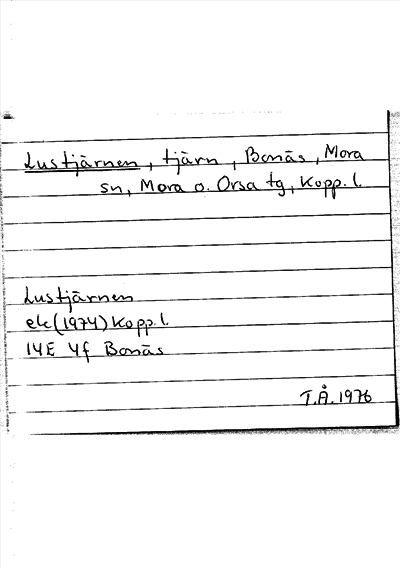 Lustjärnen, tjärn, Bonäs, Mora
sn, Mora o. Orsa tg, Kopp. l.
Lustjärnen
ek (1974) Kopp. l.
14E 4f Bonäs
T.Å. 1976